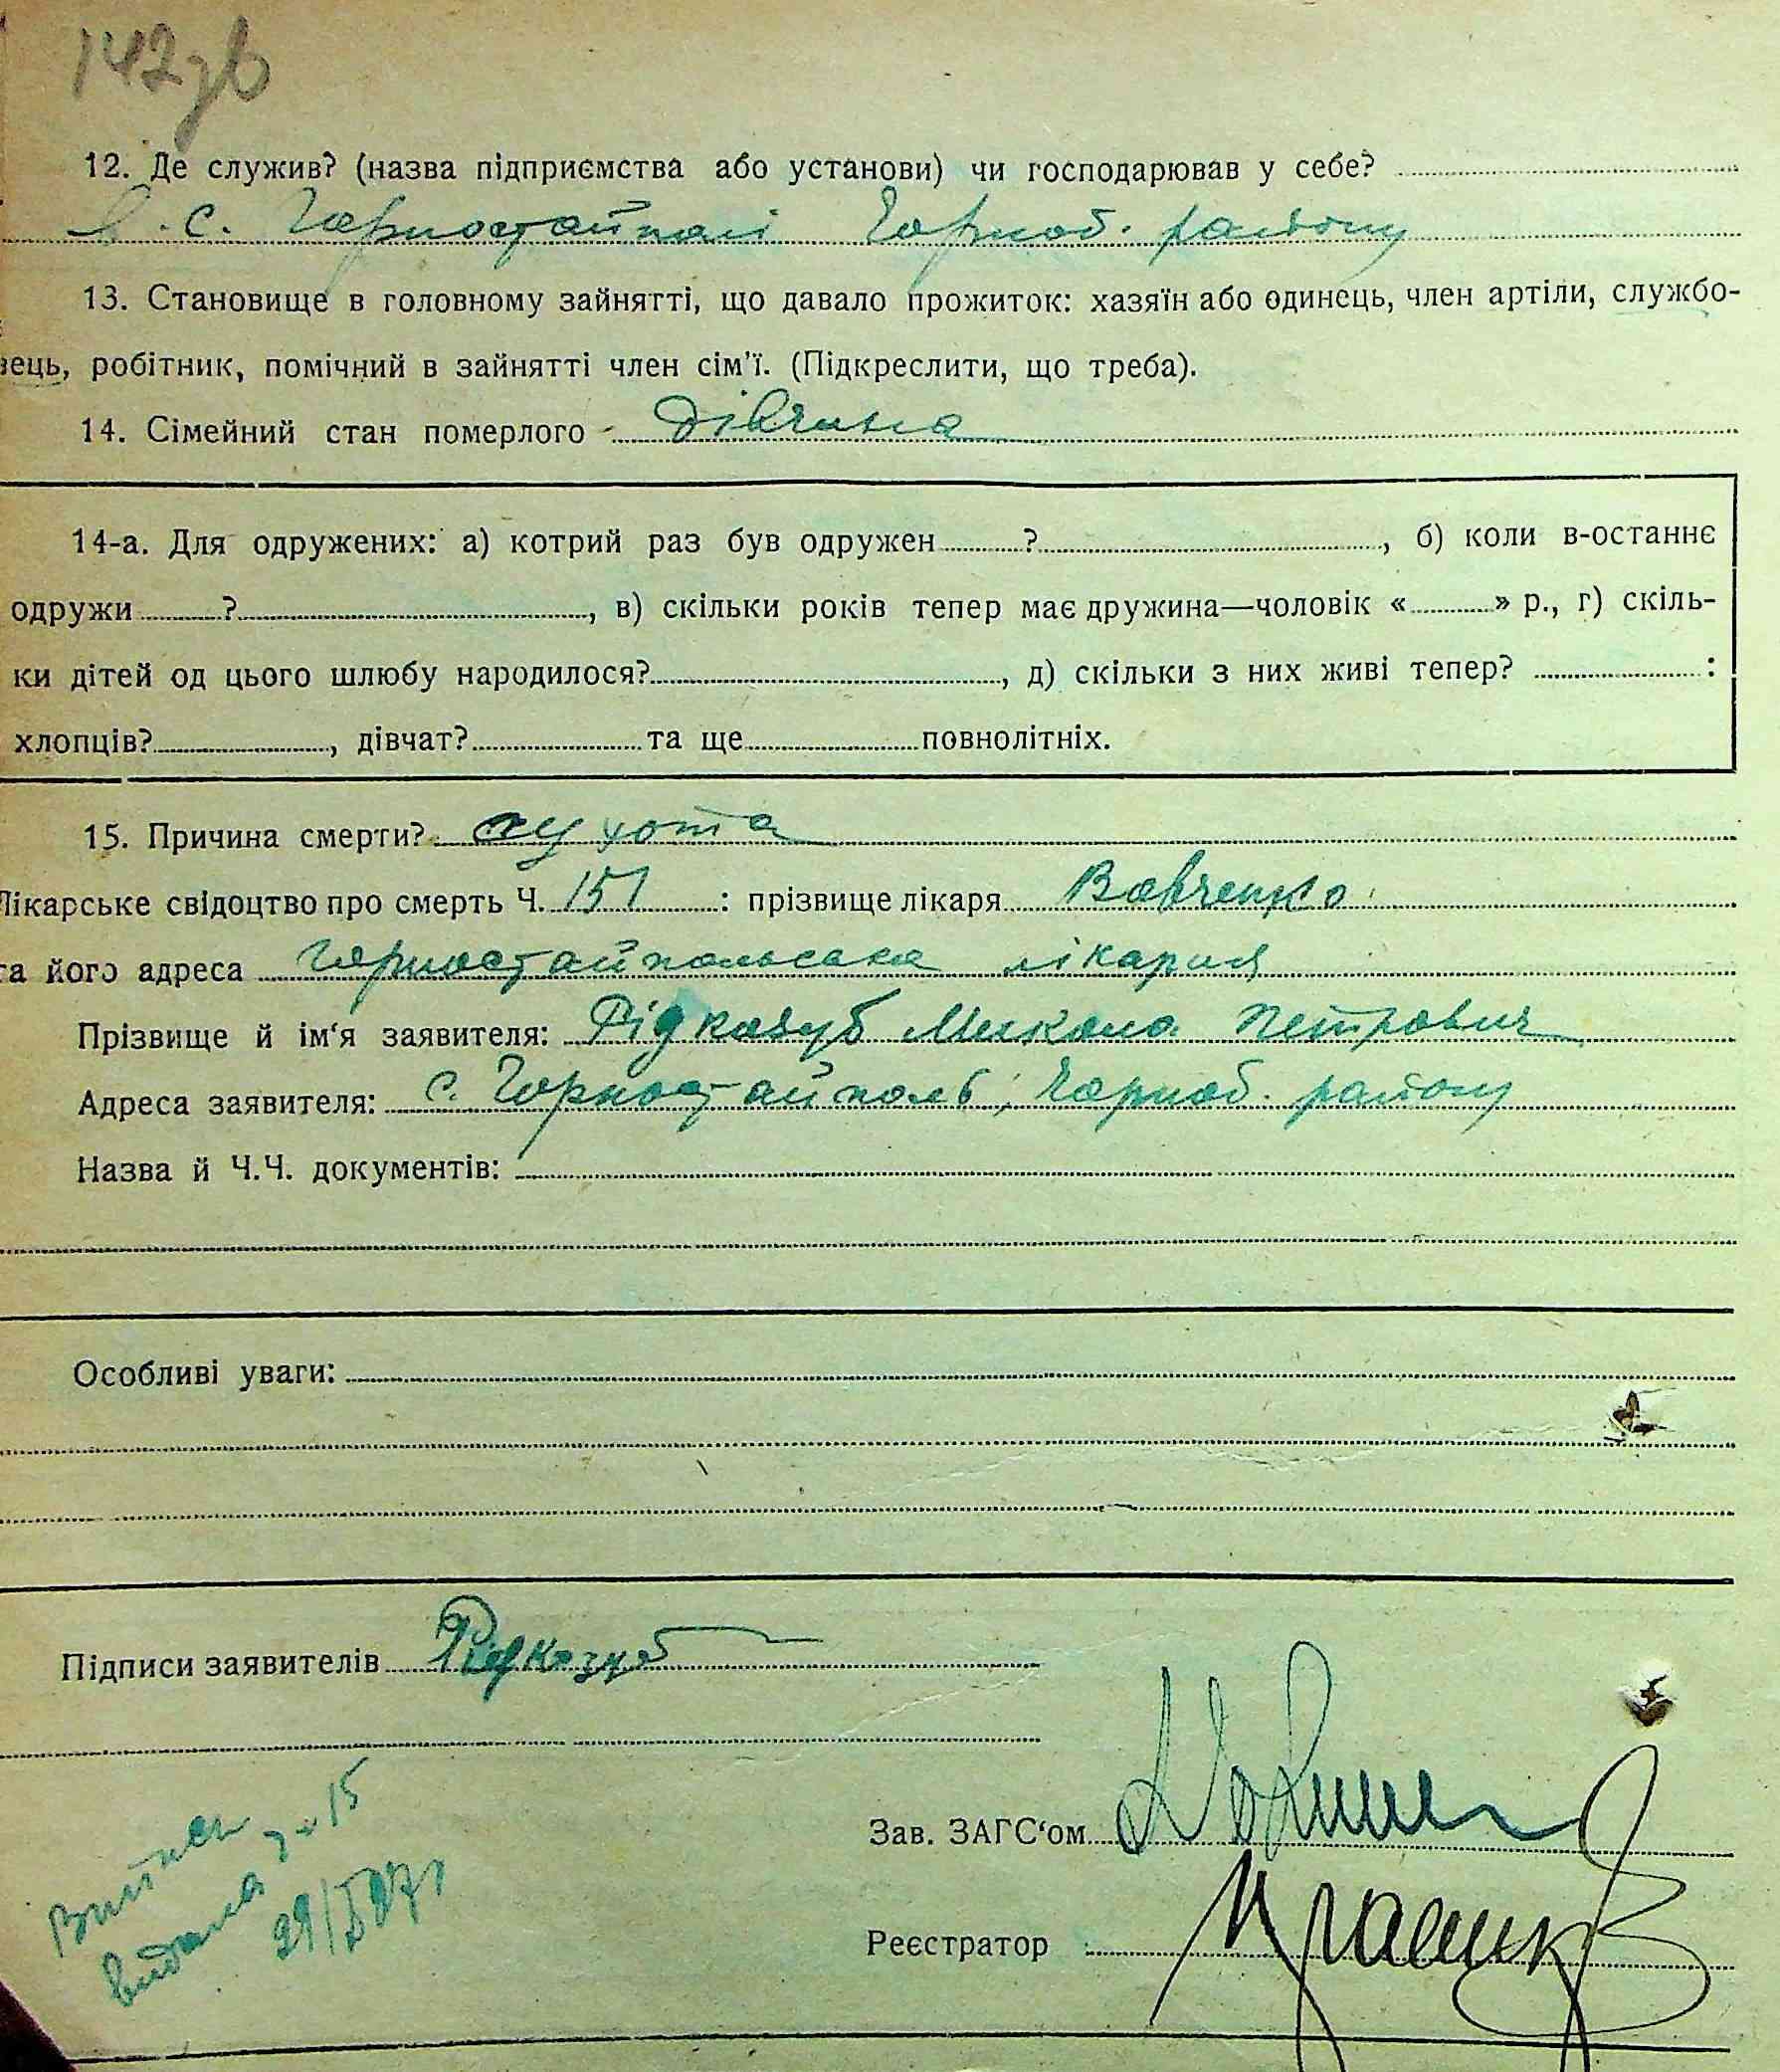 142зв
12. Де служив? (назва підприємства або установи) чи господарював у себе?
В с. Горностайполі Чорноб. району
13. Становище в головному зайнятті, що давало прожиток: хазяїн або одинець, член артіли, службо-
вець, робітник, помічний в зайнятті член сім'ї. (Підкреслити, що треба).
14. Сімейний стан померлого дівчина
14-а. Для одружених: а) котрий раз був одружен ? , б) коли в-останнє
одружи ? , в) скільки років тепер має дружина—чоловік « » р., г) скіль-
ки дітей од цього шлюбу народилося? , д) скільки з них живі тепер? :
хлопців? , дівчат? та ще повнолітніх.
15. Причина смерти? сухота
Лікарське свідоцтво про смерть Ч. 151 : прізвище лікаря Вовченко
та його адреса Горностайпольська лікарня
Прізвище й ім‘я заявителя: Рідкозуб Микола Петрович
Адреса заявителя: с. Горностайполь, Чорноб. району
Назва й Ч.Ч. документів:
Особливі уваги:
Підписи заявителів Рідкозуб
Зав. ЗАГС‘ом
Реєстратор
Витяг
видано 15